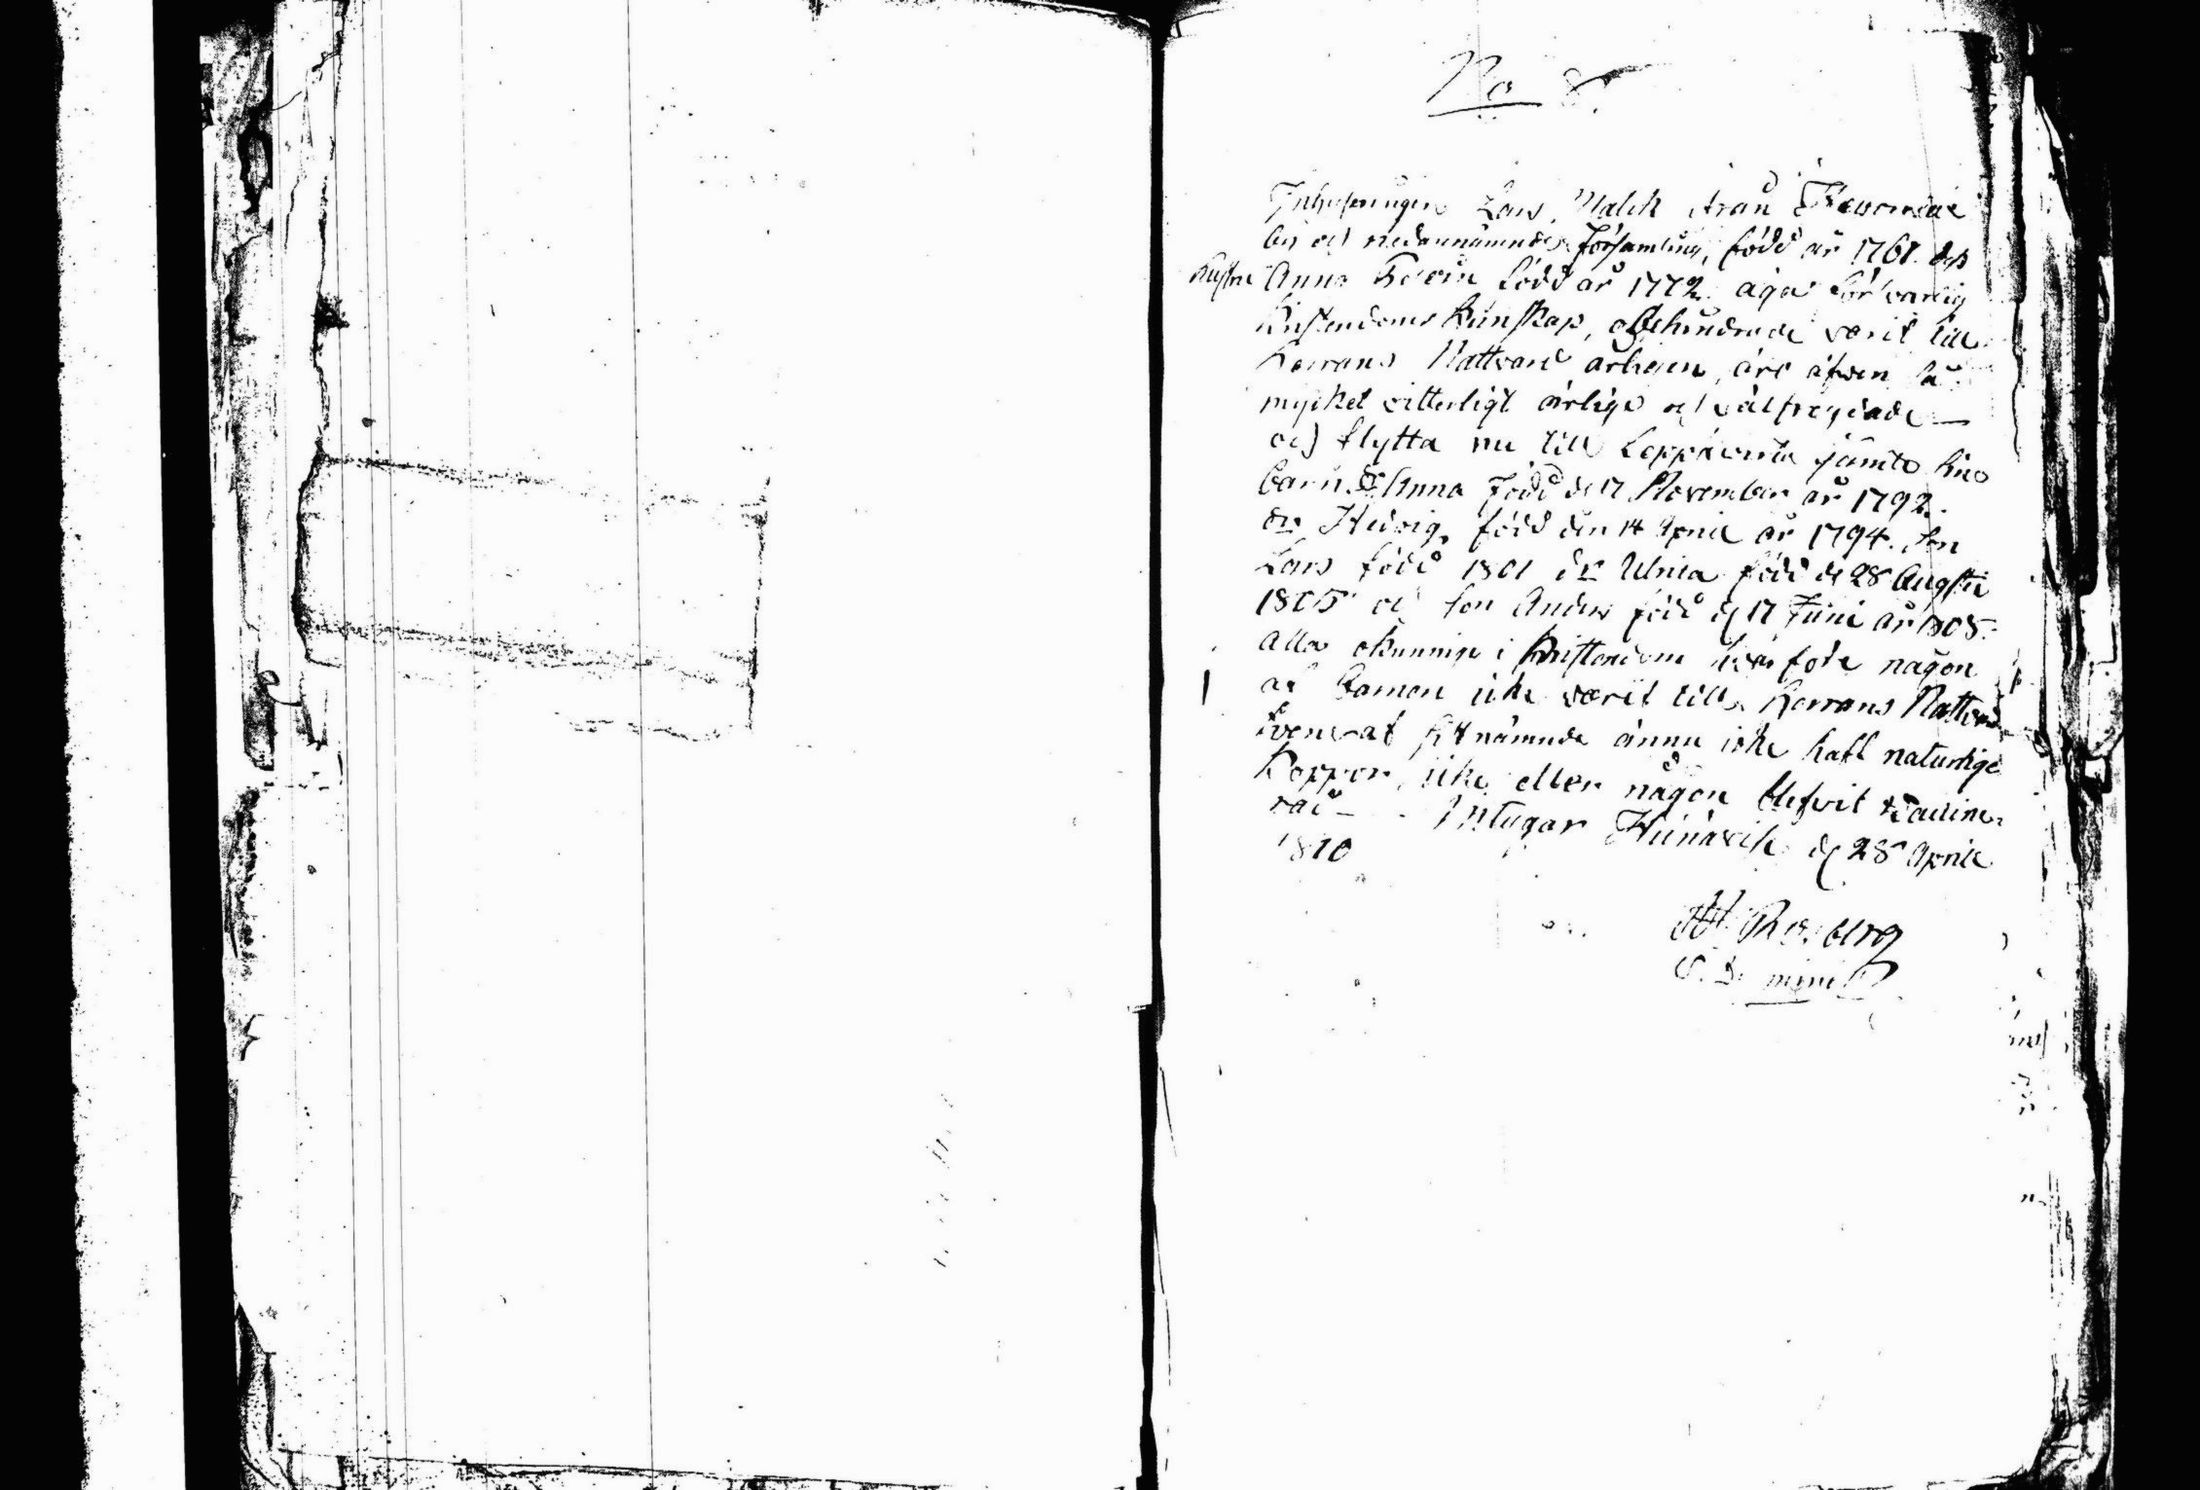 No 8.
Inhysingen Lars Malck från
by och nedannämnde församling, född år 1761. dess
hustru Anna född år 1772. äga försvarlig
Kristendoms Kunskap, obehindrade varit till
Herrans Nattvard årligen, äro äfven så
mycket vitterligt ärlige och välfreydade —
och flytta nu till Leppävirta jämte sina
barn Dr Anna född d 17 November år 1792.
dr Hedvig, född den 14 April år 1794. son
Lars född 1801 dr Ulrica född d 28 Augsti
1805 och son Anders född d 17 Juni år 1808.
alla okunnige i Kristendom hvarföre någon
af barnen icke varit till Herrans Nattvard
nämnde ännu icke haft naturlige
Koppor, icke eller någon blefvit Vaccine-
rad — Intygar d 28 April
1810
berg